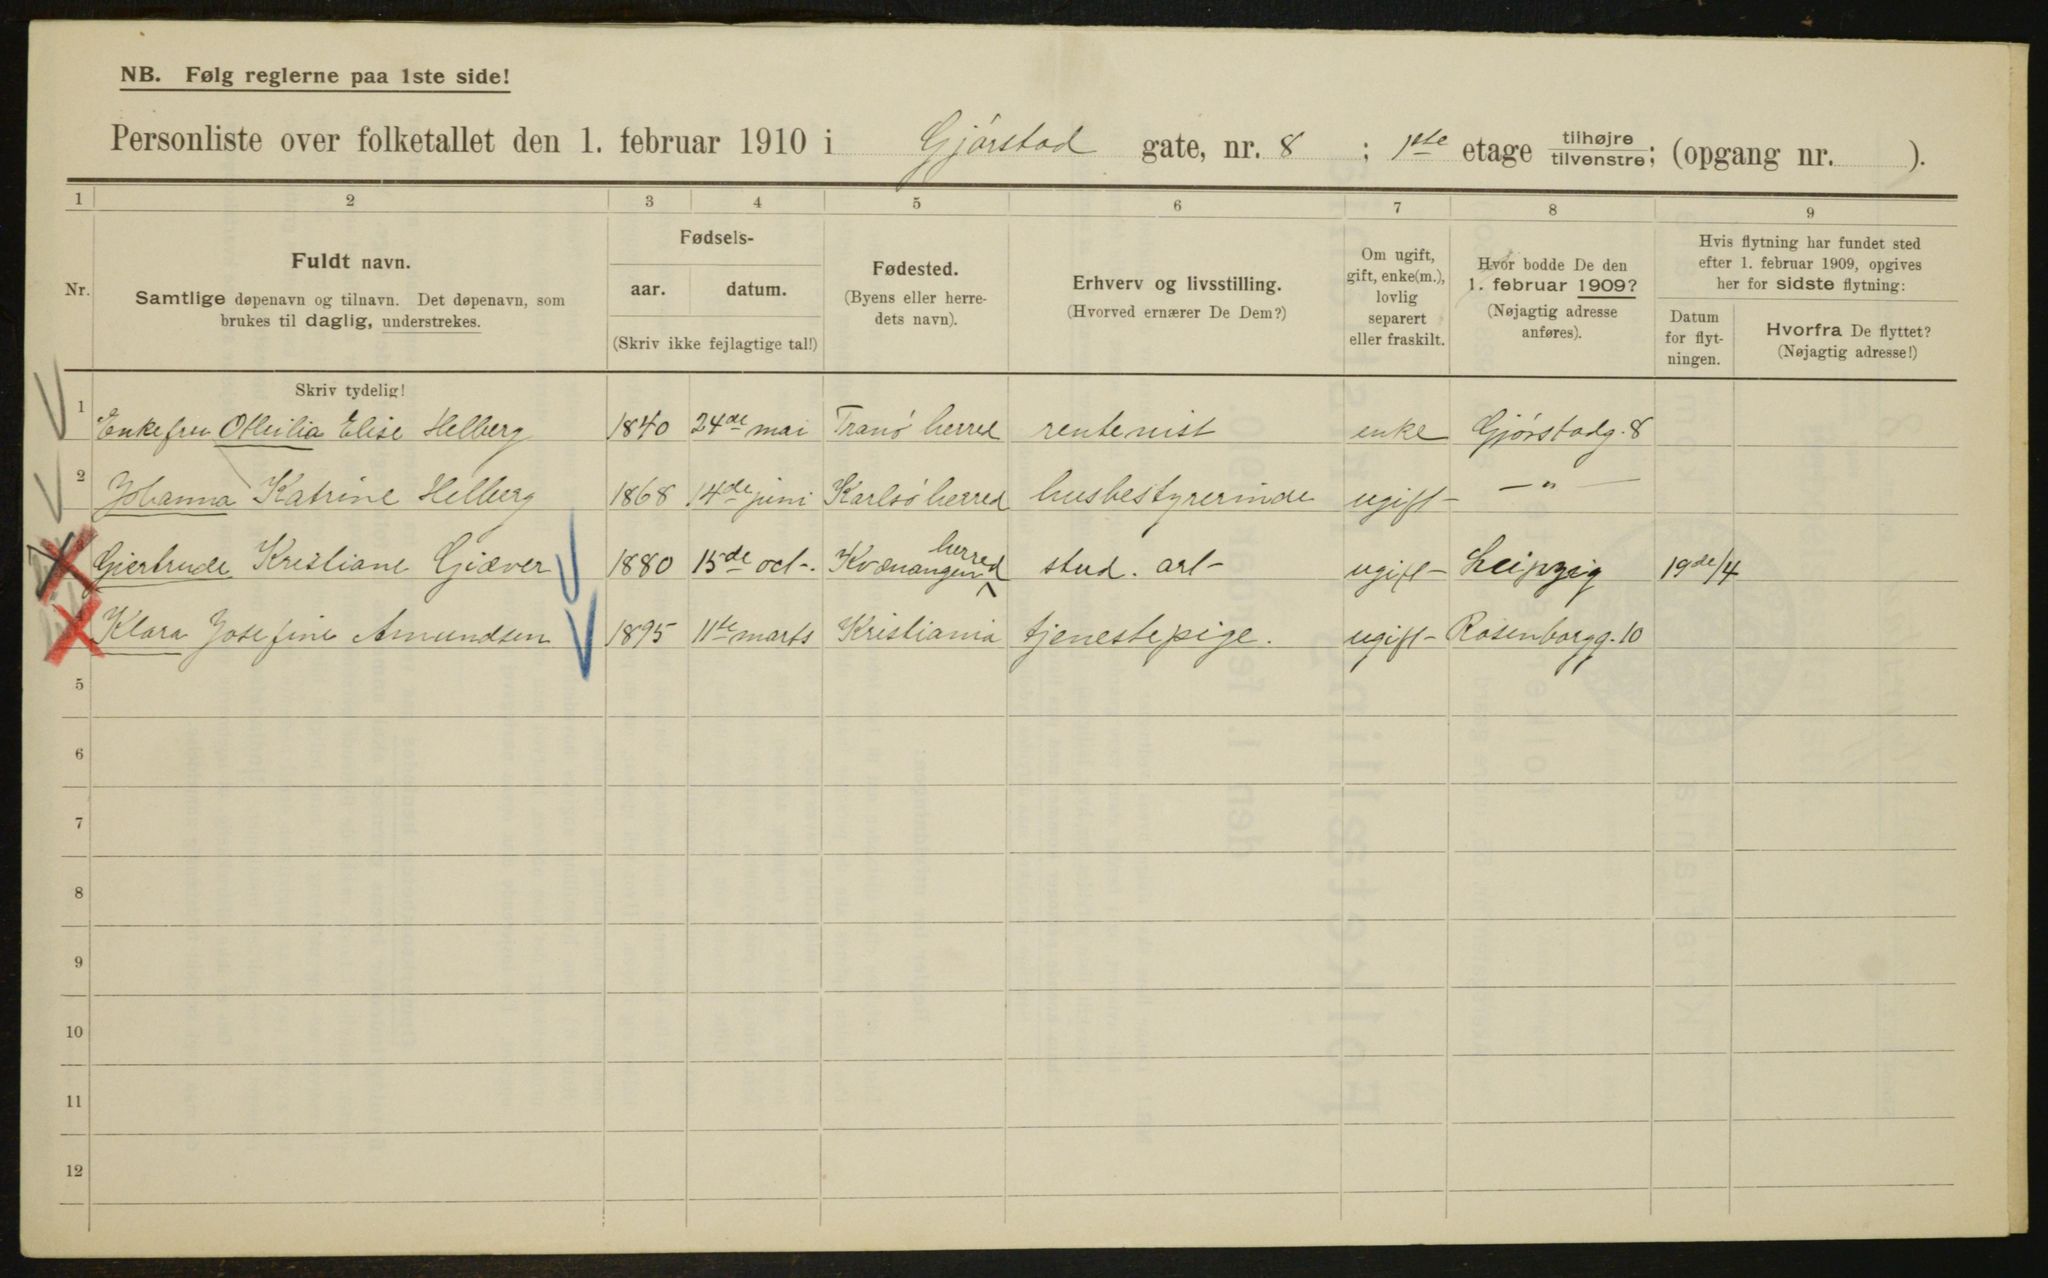 NB. Følg reglerne paa 1ste side!
Personliste over folketallet den 1. februar 1910 i Gjørstad gate, nr. 8 ; 1ste etage tilhøjre tilvenstre; (opgang nr. ).
1 2 3 4 5 6 7 8 9
Nr.
Fuldt navn.
Samtlige døpenavn og tilnavn. Det døpenavn, som
brukes til daglig, understrekes.
Fødsels-
aar. datum.
(Skriv ikke fejlagtige tal!)
Fødested.
(Byens eller herre-
dets navn).
Erhverv og livsstilling.
(Hvorved ernærer De Dem?)
Om ugift,
gift, enke(m.),
lovlig
separert
eller fraskilt.
Hvor bodde De den
1. februar 1909?
(Nøjagtig adresse
anføres).
Hvis flytning har fundet sted
efter 1. februar 1909, opgives
her for sidste flytning:
Datum
for flyt-
ningen.
Hvorfra De flyttet?
(Nøjagtig adresse!)
Skriv tydelig!
1 Enkefru Otteilia Elise Helberg 1840 24de mai Tranø herred rentenist enke Gjørstadg. 8
2 Johanna Katrine Helberg 1868 14de juni Karlsø herred husbestyrerinde ugift – – " –
Gjertrude Kristiane Giæver 1880 15de oct. Kvænangen herred stud. art– ugift – Leipzig 19de/4
Klara Josefine Amundsen 1895 11te marts Kristiania tjenestepige. ugift – Rosenborgg. 10
5
6
7
8
9
10
11
12